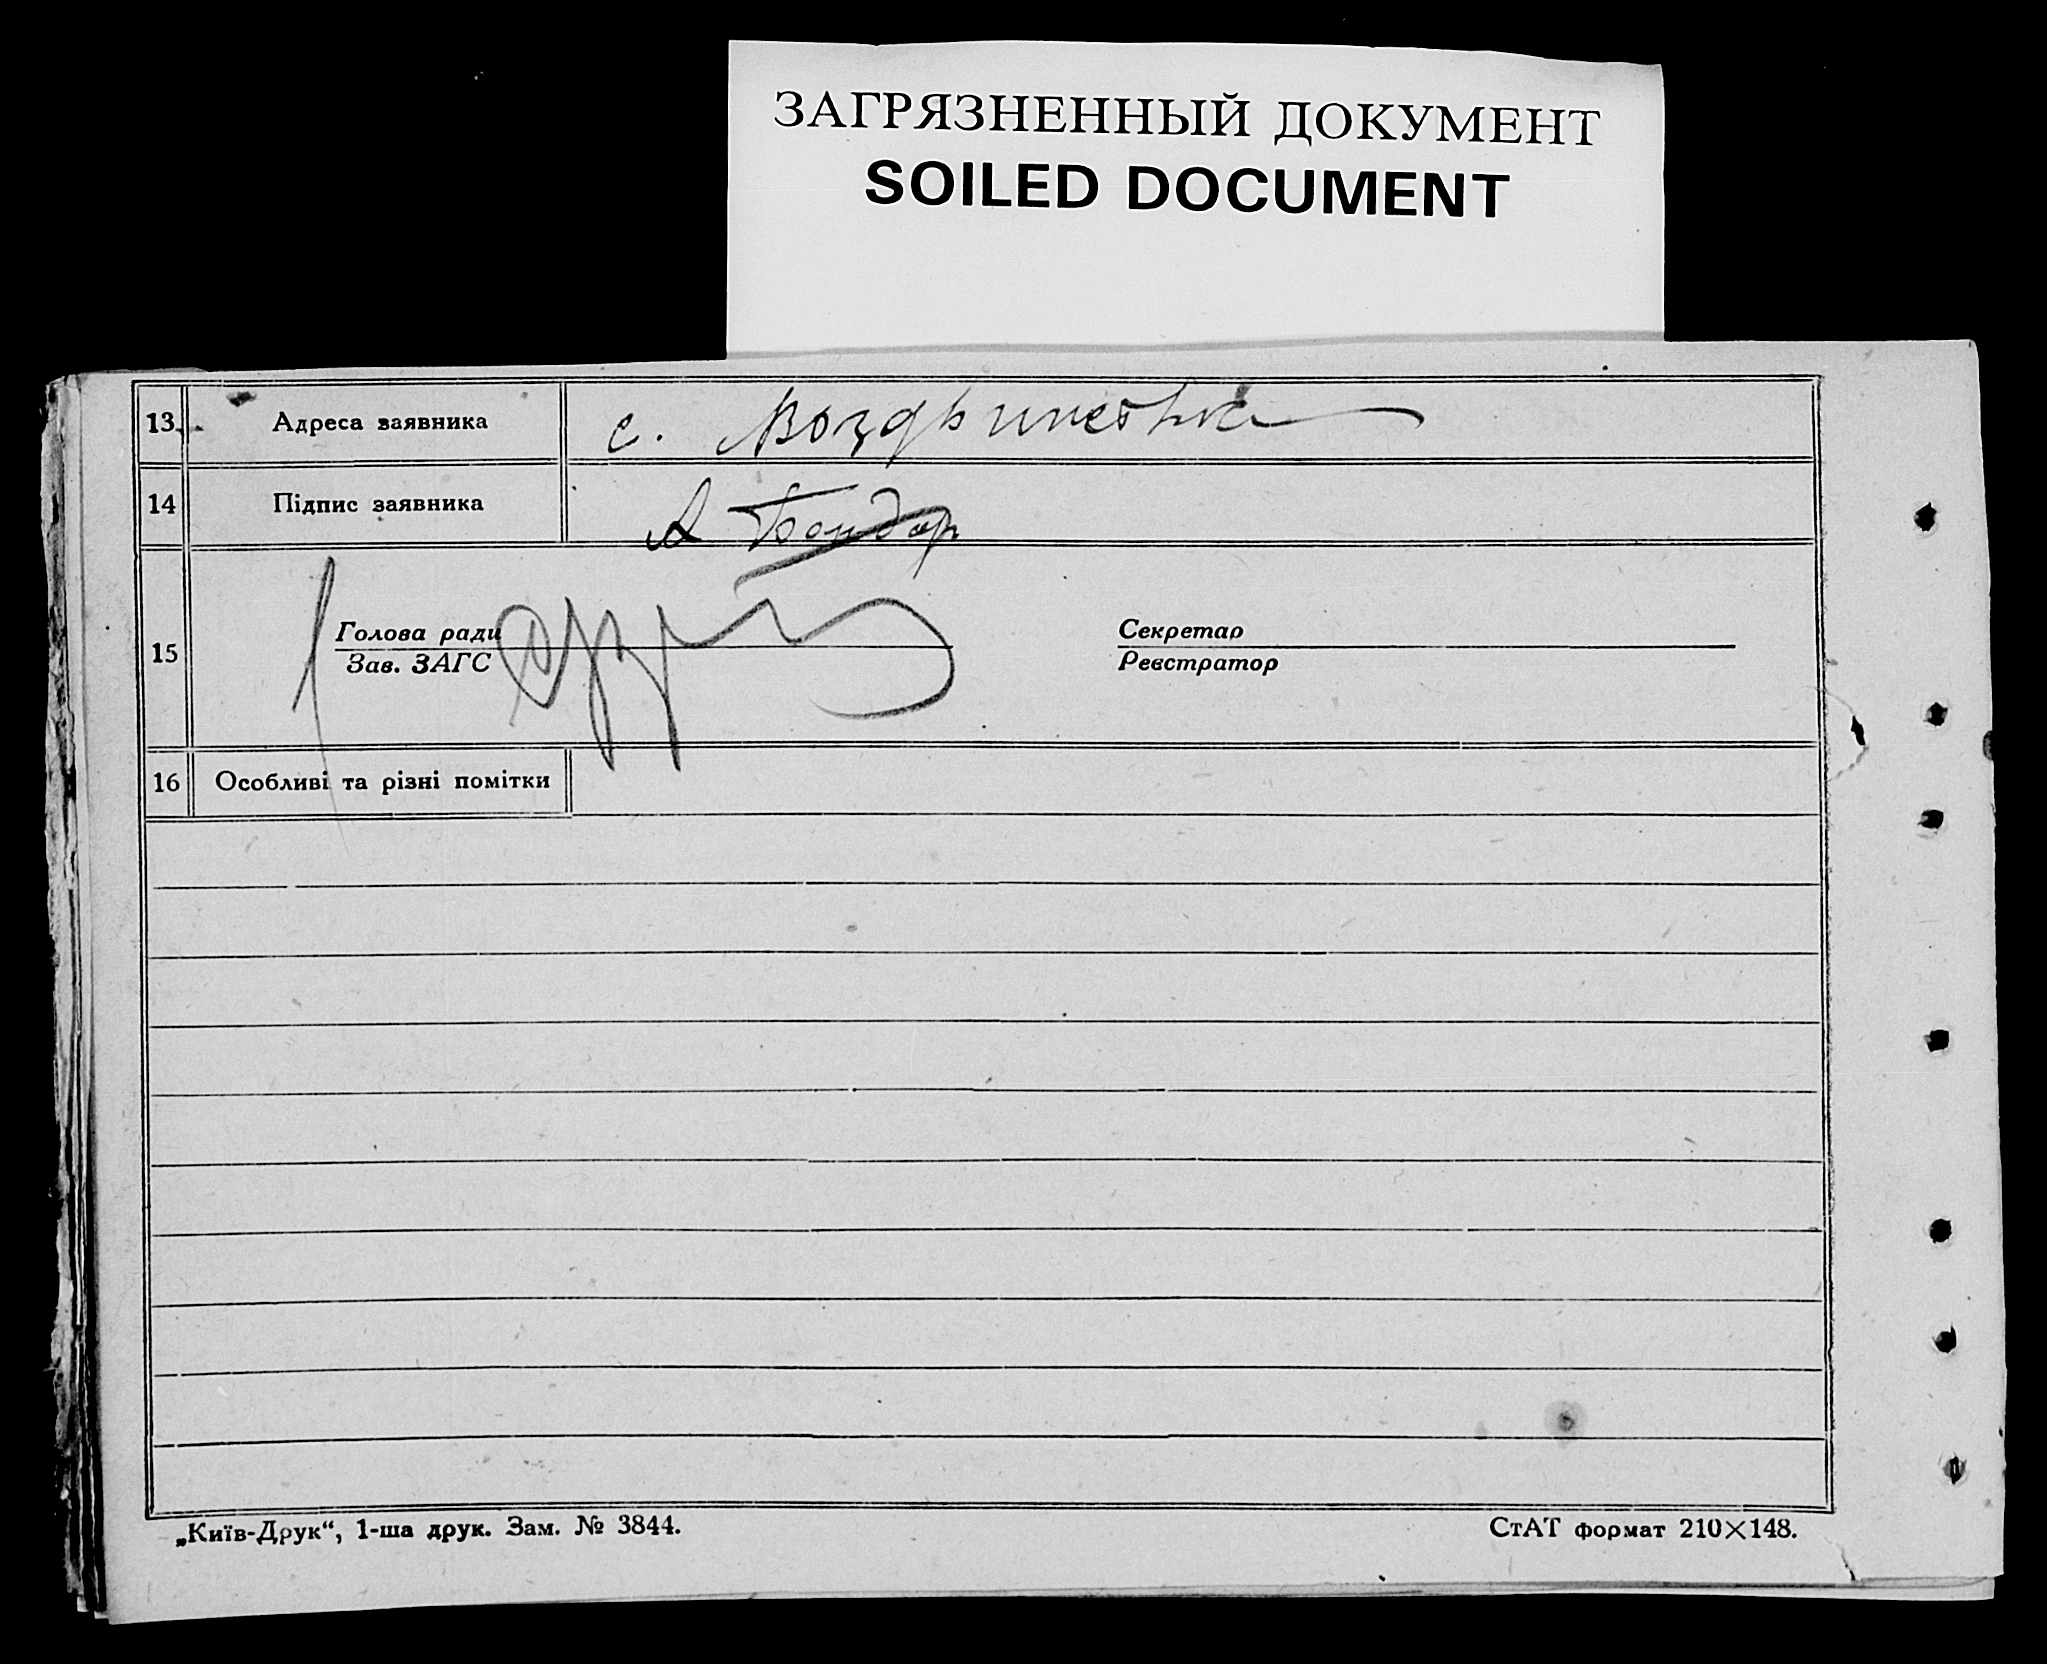 ЗАГРЯЗНЕННЫЙ ДОКУМЕНТ
SOILED DOCUMENT
13 Адреса заявника с. Воздвижевка
14 Підпис заявника А Бондар
15 Голова ради Секретар
Зав. ЗАГС Реєстратор
16 Особливі та різні помітки
„Київ-Друк“, 1-ша друк. Зам. № 3844. СтАТ формат 210×148.